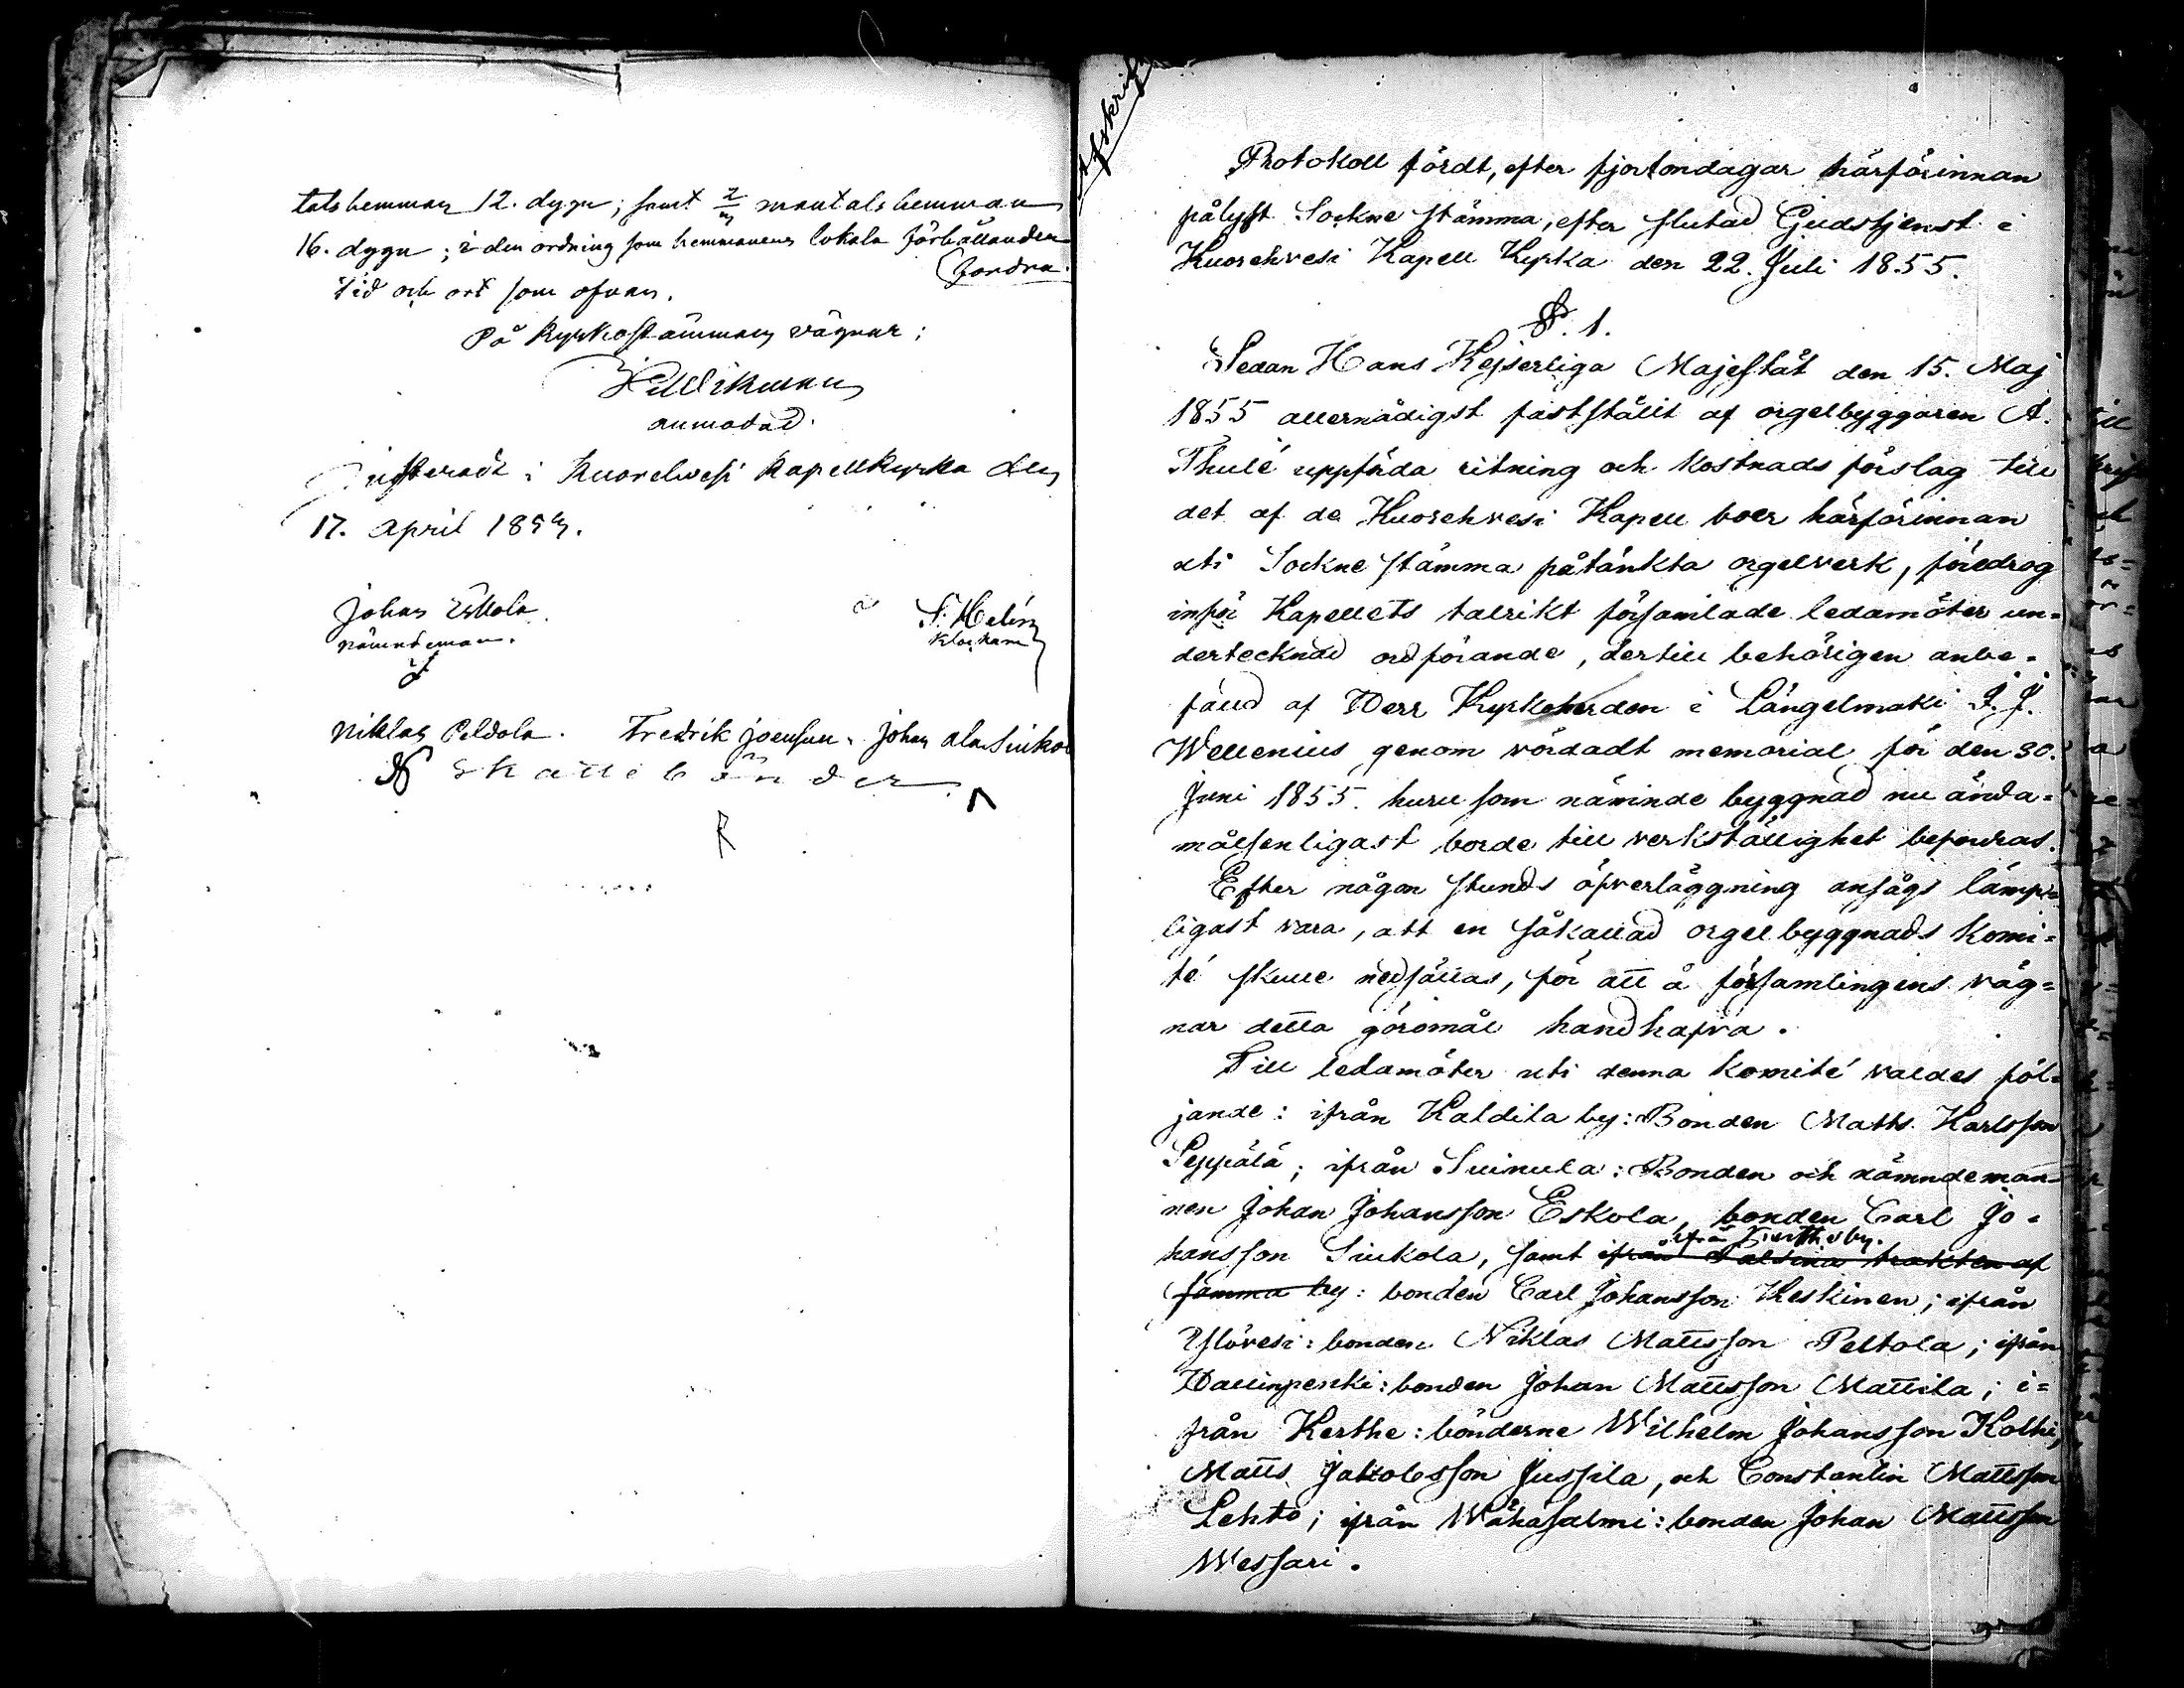 talshemman 12. dygn; samt 2/3 mantals hemman
16. dygn; i den ordning som hemmanens lokala förhållanden
fordra.
Tid och ort som ofvan.
På Kyrkostämmans vägnar:
Wikman
anmodad.
Justeradt i Kuorehvesi Kapellkyrka den
17. April 1853.
Johan Eskola
nämndeman.
F. Melin
Klockare
Niklas Peldola. Fredrik Joensuu. Johan Ala Siukola
Skattebönder
Afskrift
Protokoll fördt, efter fjortondagar härförinnan
pålyst Sockne stämma, efter slutad Gudstjenst i
Kuorehvesi Kapell Kyrka den 22. Juli 1855.
§. 1.
Sedan Hans Kejserliga Majestät den 15. Maj
1855 allernådigst fastställt af orgelbyggaren A.
Thulé uppförda ritning och kostnads förslag till
det af de Kuorehvesi Kapell boer härförinnan
uti Sockne stämma påtänkta orgelverk, föredrog
inför Kapellets talrikt församlade ledamöter un=
dertecknad ordförande, dertill behörigen anbe=
falld af Herr Kyrkoherden i Längelmäki J. J.
Wellenius genom vördadt memorial för den 30.
Juni 1855. huru som nämnde byggnad nu ända=
målsenligast borde till verkställighet befordras.
Efter någon stunds öfverläggning ansågs lämp=
ligast vara, att en såkallad orgelbyggnads komi=
té skulle nedsättas, för att å församlingens väg=
nar detta göromål handhafva.
Till ledamöter uti denna komité valdes föl=
jande: ifrån Kaldila by: Bonden Matts Karlsson
Seppälä; ifrån Suinula: Bonden och nämndeman=
nen Johan Johansson Eskola, bonden Carl Jo=
ifrån by.
hansson Siukola, samt ifrån trakten af
samma by: bonden Carl Johansson Keskinen; ifrån
Ylövesi: bonden Niklas Mattsson Peltola; ifrån
Hallinpenki: bonden Johan Mattsson Mattila; i=
från Kerthe: bönderne Wilhelm Johansson Kolhi,
Matts Jakobsson Jussila, och Constantin Mattsson
Lehto; ifrån Wähäsalmi: bonden Johan Mattsson
Wessari.